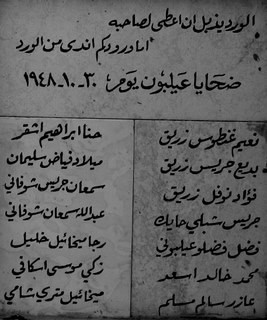 الورد يذبل ان اعطى لصاحبه
اما ورودكم اندى من الورد
ضحايا عيلبون يوم ٣٠-١٠-١٩٤٨
نعيم غنطوس زريق
بديع جريس زريق
فؤاد نوفل زريق
جريس شبلي حايك
فضل فضلو عيلبوني
محمد خالد اسعد
عازر سالم مسلم
حنا ابراهيم اشقر
ميلاد فياض سليمان
سمعان جريس شوفاني
عبدالله سمعان شوفاني
رجا ميخائيل خليل
زكي موسى اسكافي
ميخائيل متري شامي